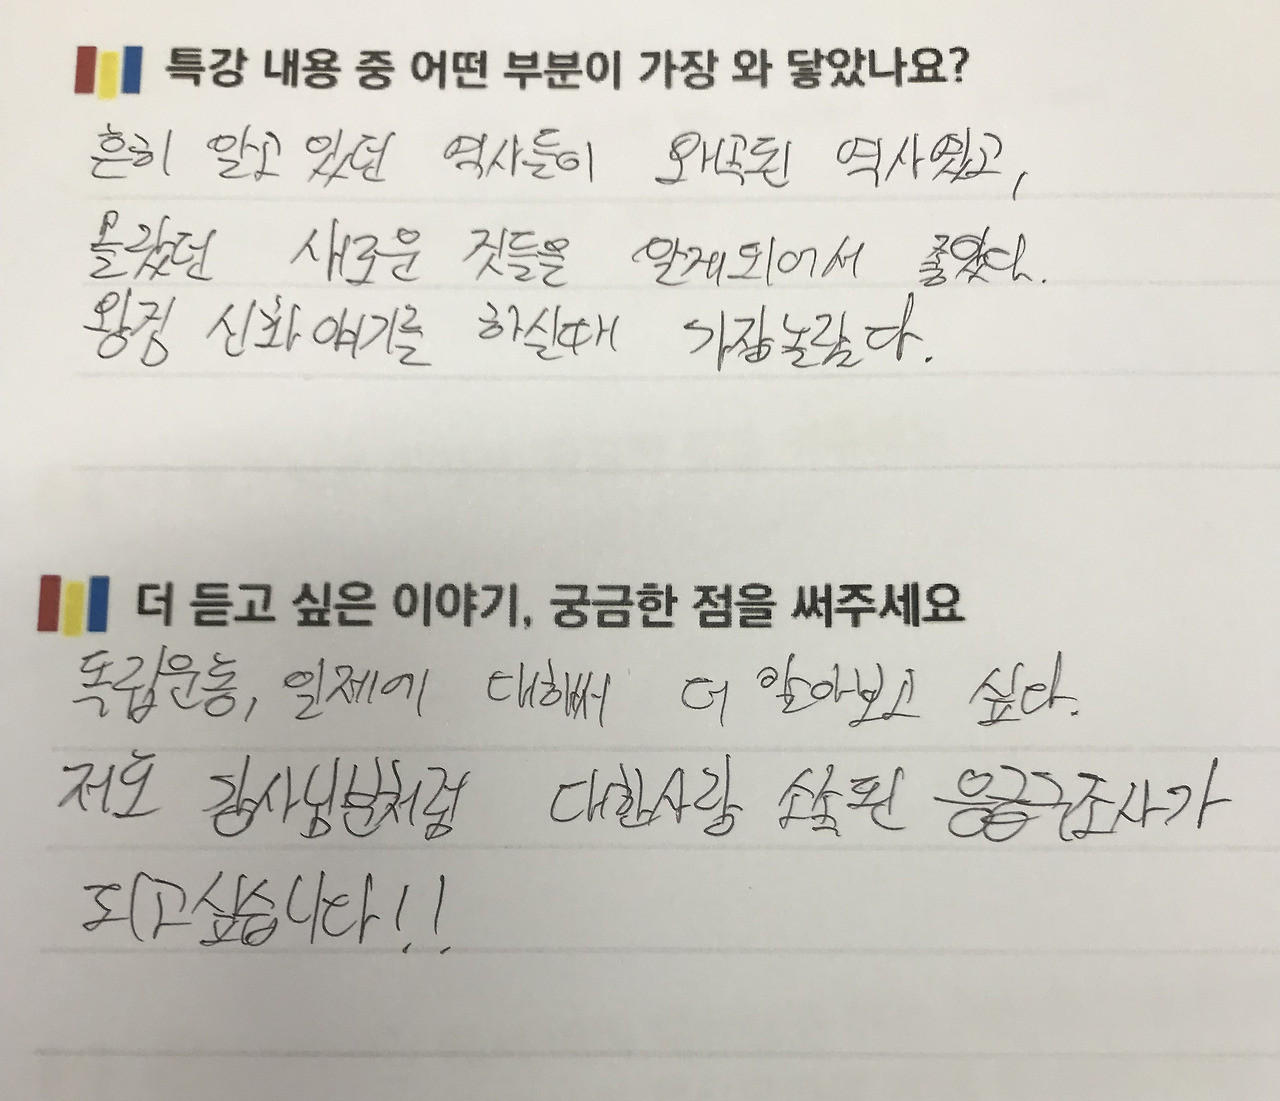 특강 내용 중 어떤 부분이 가장 와 닿았나요?
흔히 알고 있던 역사들이 왜곡된 역사였고,
몰랐던 새로운 것들을 알게되어서 좋았다.
왕검 신화 얘기를 하실때 가장놀랐다.
더 듣고 싶은 이야기, 궁금한 점을 써주세요
독립운동, 일제에 대해서 더 알아보고 싶다.
저도 강사님분처럼 대한사랑 소속된 응급구조사가
되고싶습니다!!